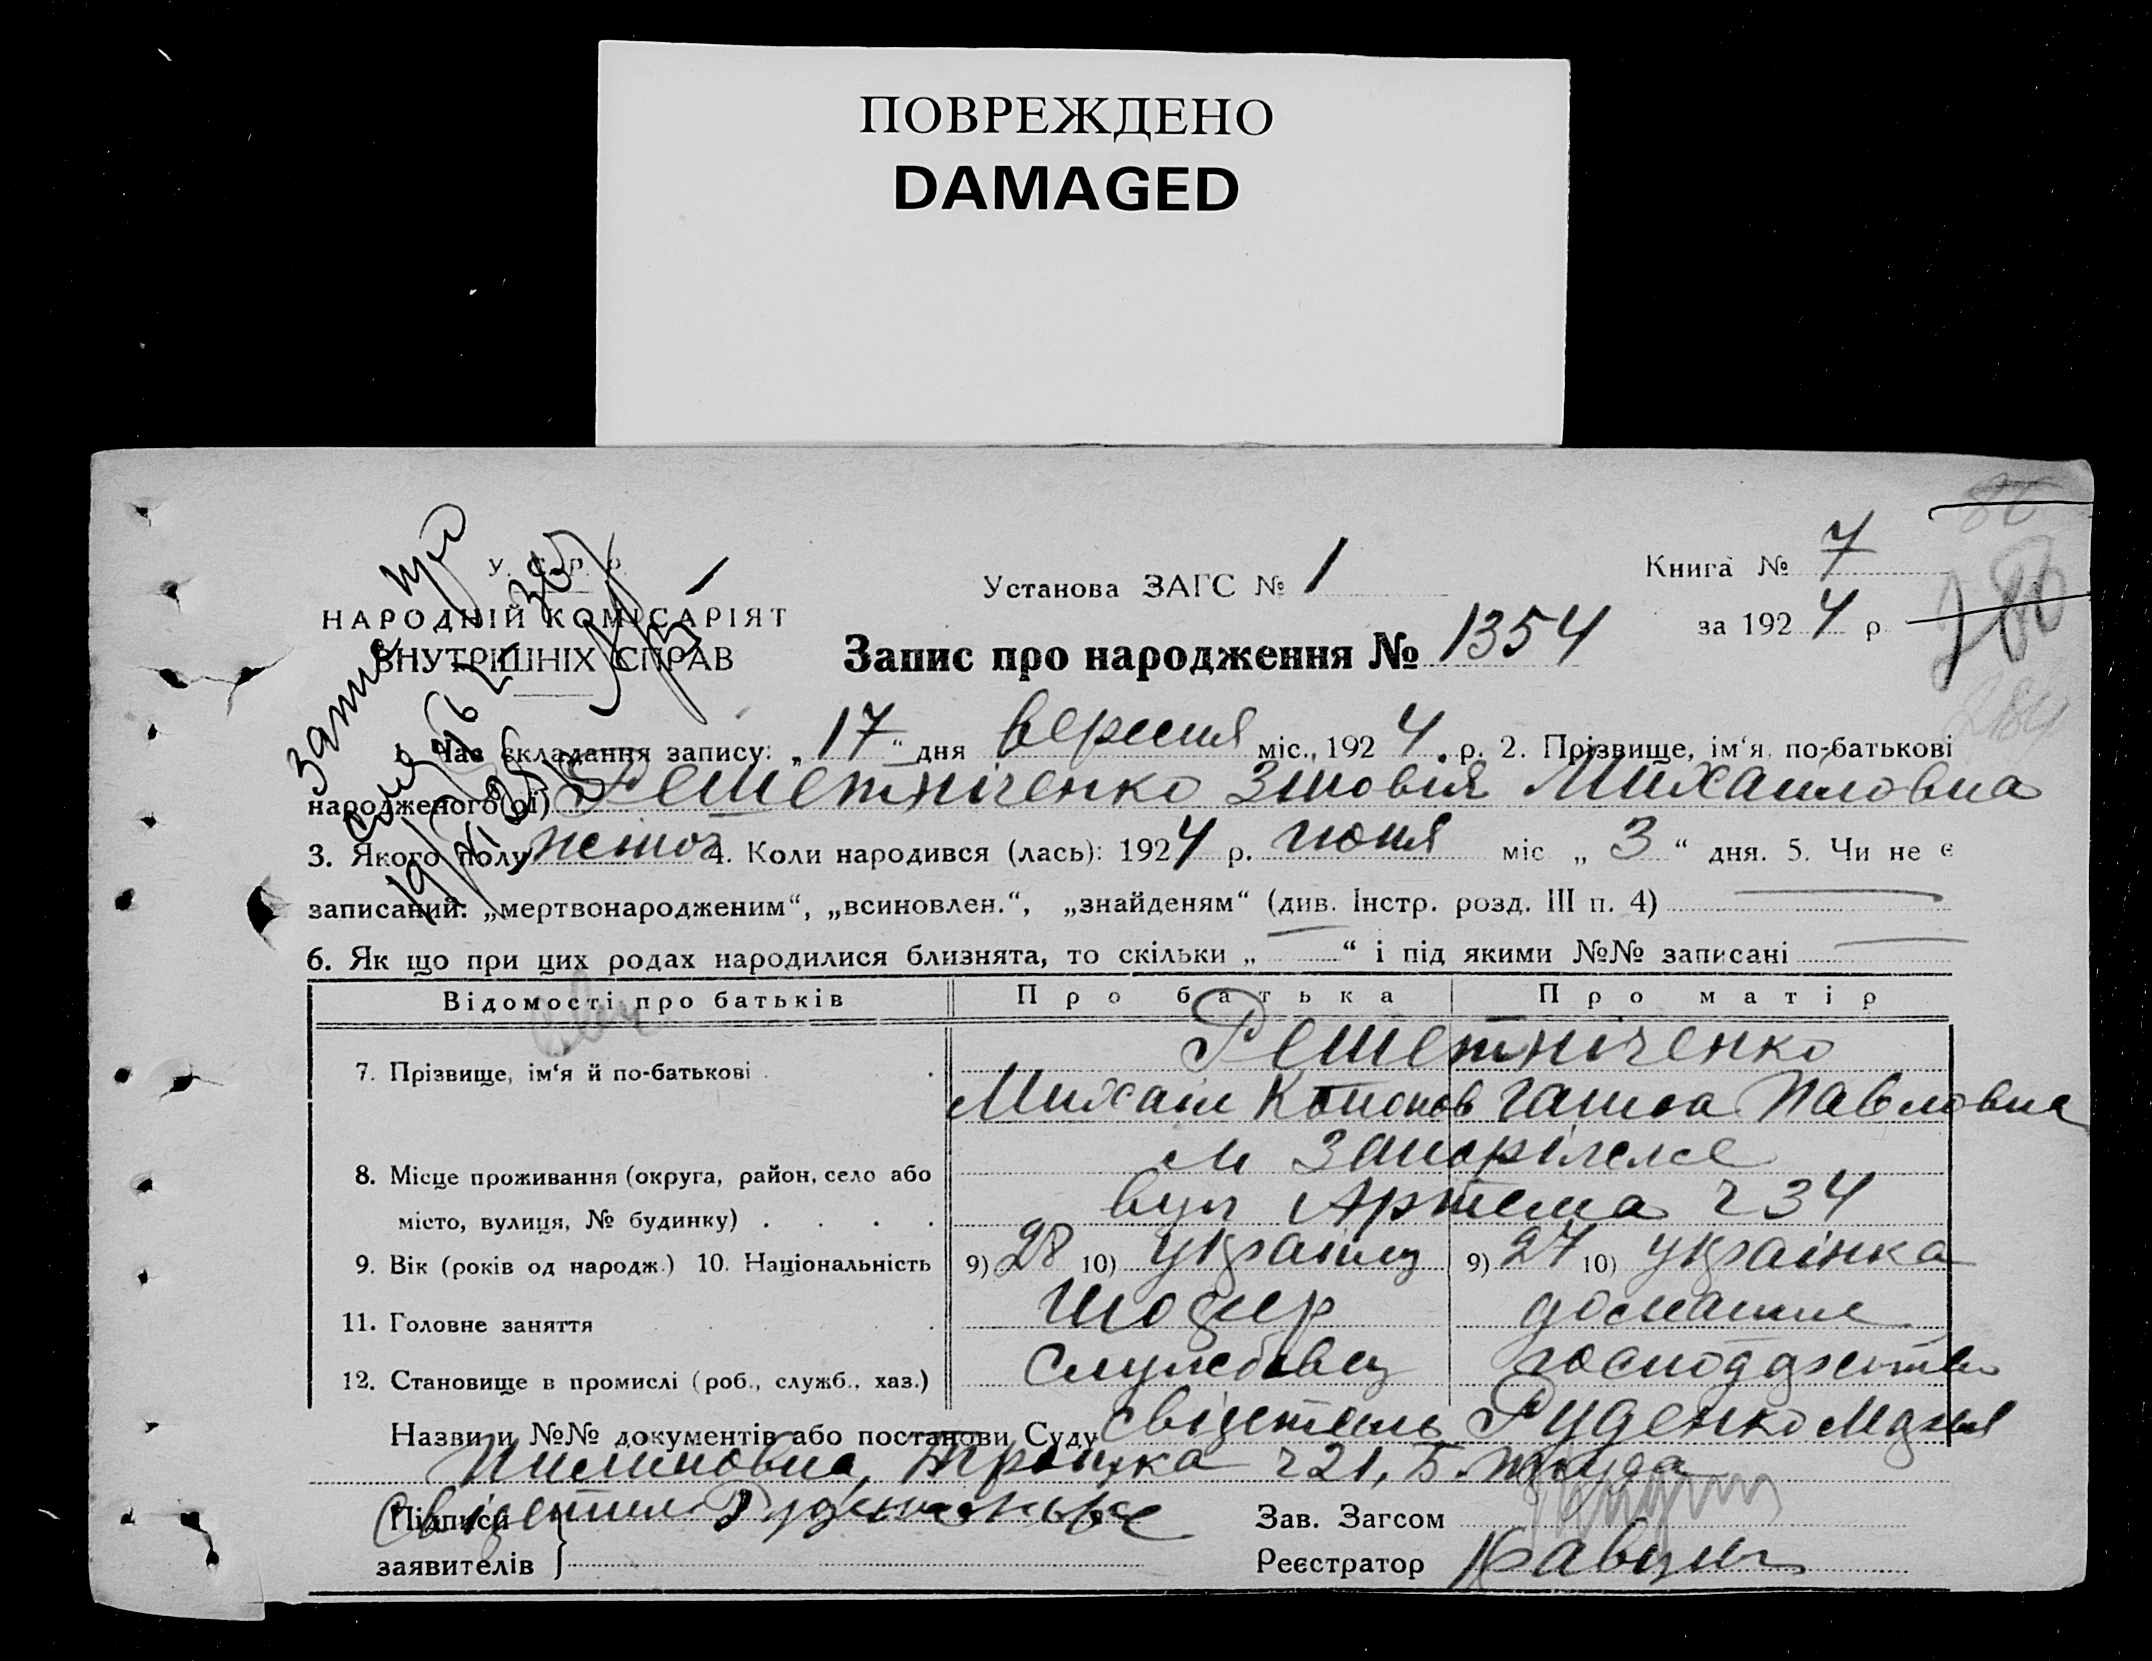 ПОВРЕЖДЕНО
DAMAGED
У. С. Р. Р.
НАРОДНІЙ КОМІСАРІЯТ
ВНУТРІШНІХ СПРАВ
Установа ЗАГС № 1
Книга № 7
за 1924 р.
Запис про народження № 1354
Час складання запису: „17“ дня вересня міс., 1924 р. 2. Прізвище, ім‘я, по-батькові
народженого(ої) Решетніченко Зиновія Михайловна
3. Якого полу жіноч 4. Коли народився (лась): 1924 р. июня міс „3“ дня. 5. Чи не є
записаний: „мертвонародженим“, „всиновлен.“, „знайденям“ (див. Інстр. розд. III п. 4)
6. Як що при цих родах народилися близнята, то скільки „ “ і під якими №№ записані
Відомості про батьків Про батька Про матір
7. Прізвище, ім‘я й по-батькові Решетніченко
Михаіл Кононов Ганна Павловна
8. Місце проживання (округа, район, село або м Запоріжжє
місто, вулиця, № будинку) вул Артема ч 34
9. Вік (років од народж.) 10. Національність 9) 28 10) українец 9) 27 10) українка
11. Головне заняття шофер домашнє
12. Становище в промислі (роб., служб., хаз.) Службовец господарство
Назви и №№ документів або постанови Суду свідетель Руденко Мария
Пилиповна, Троицка ч 21,
Підписи
заявителів
Зав. Загсом
Реєстратор Кравец